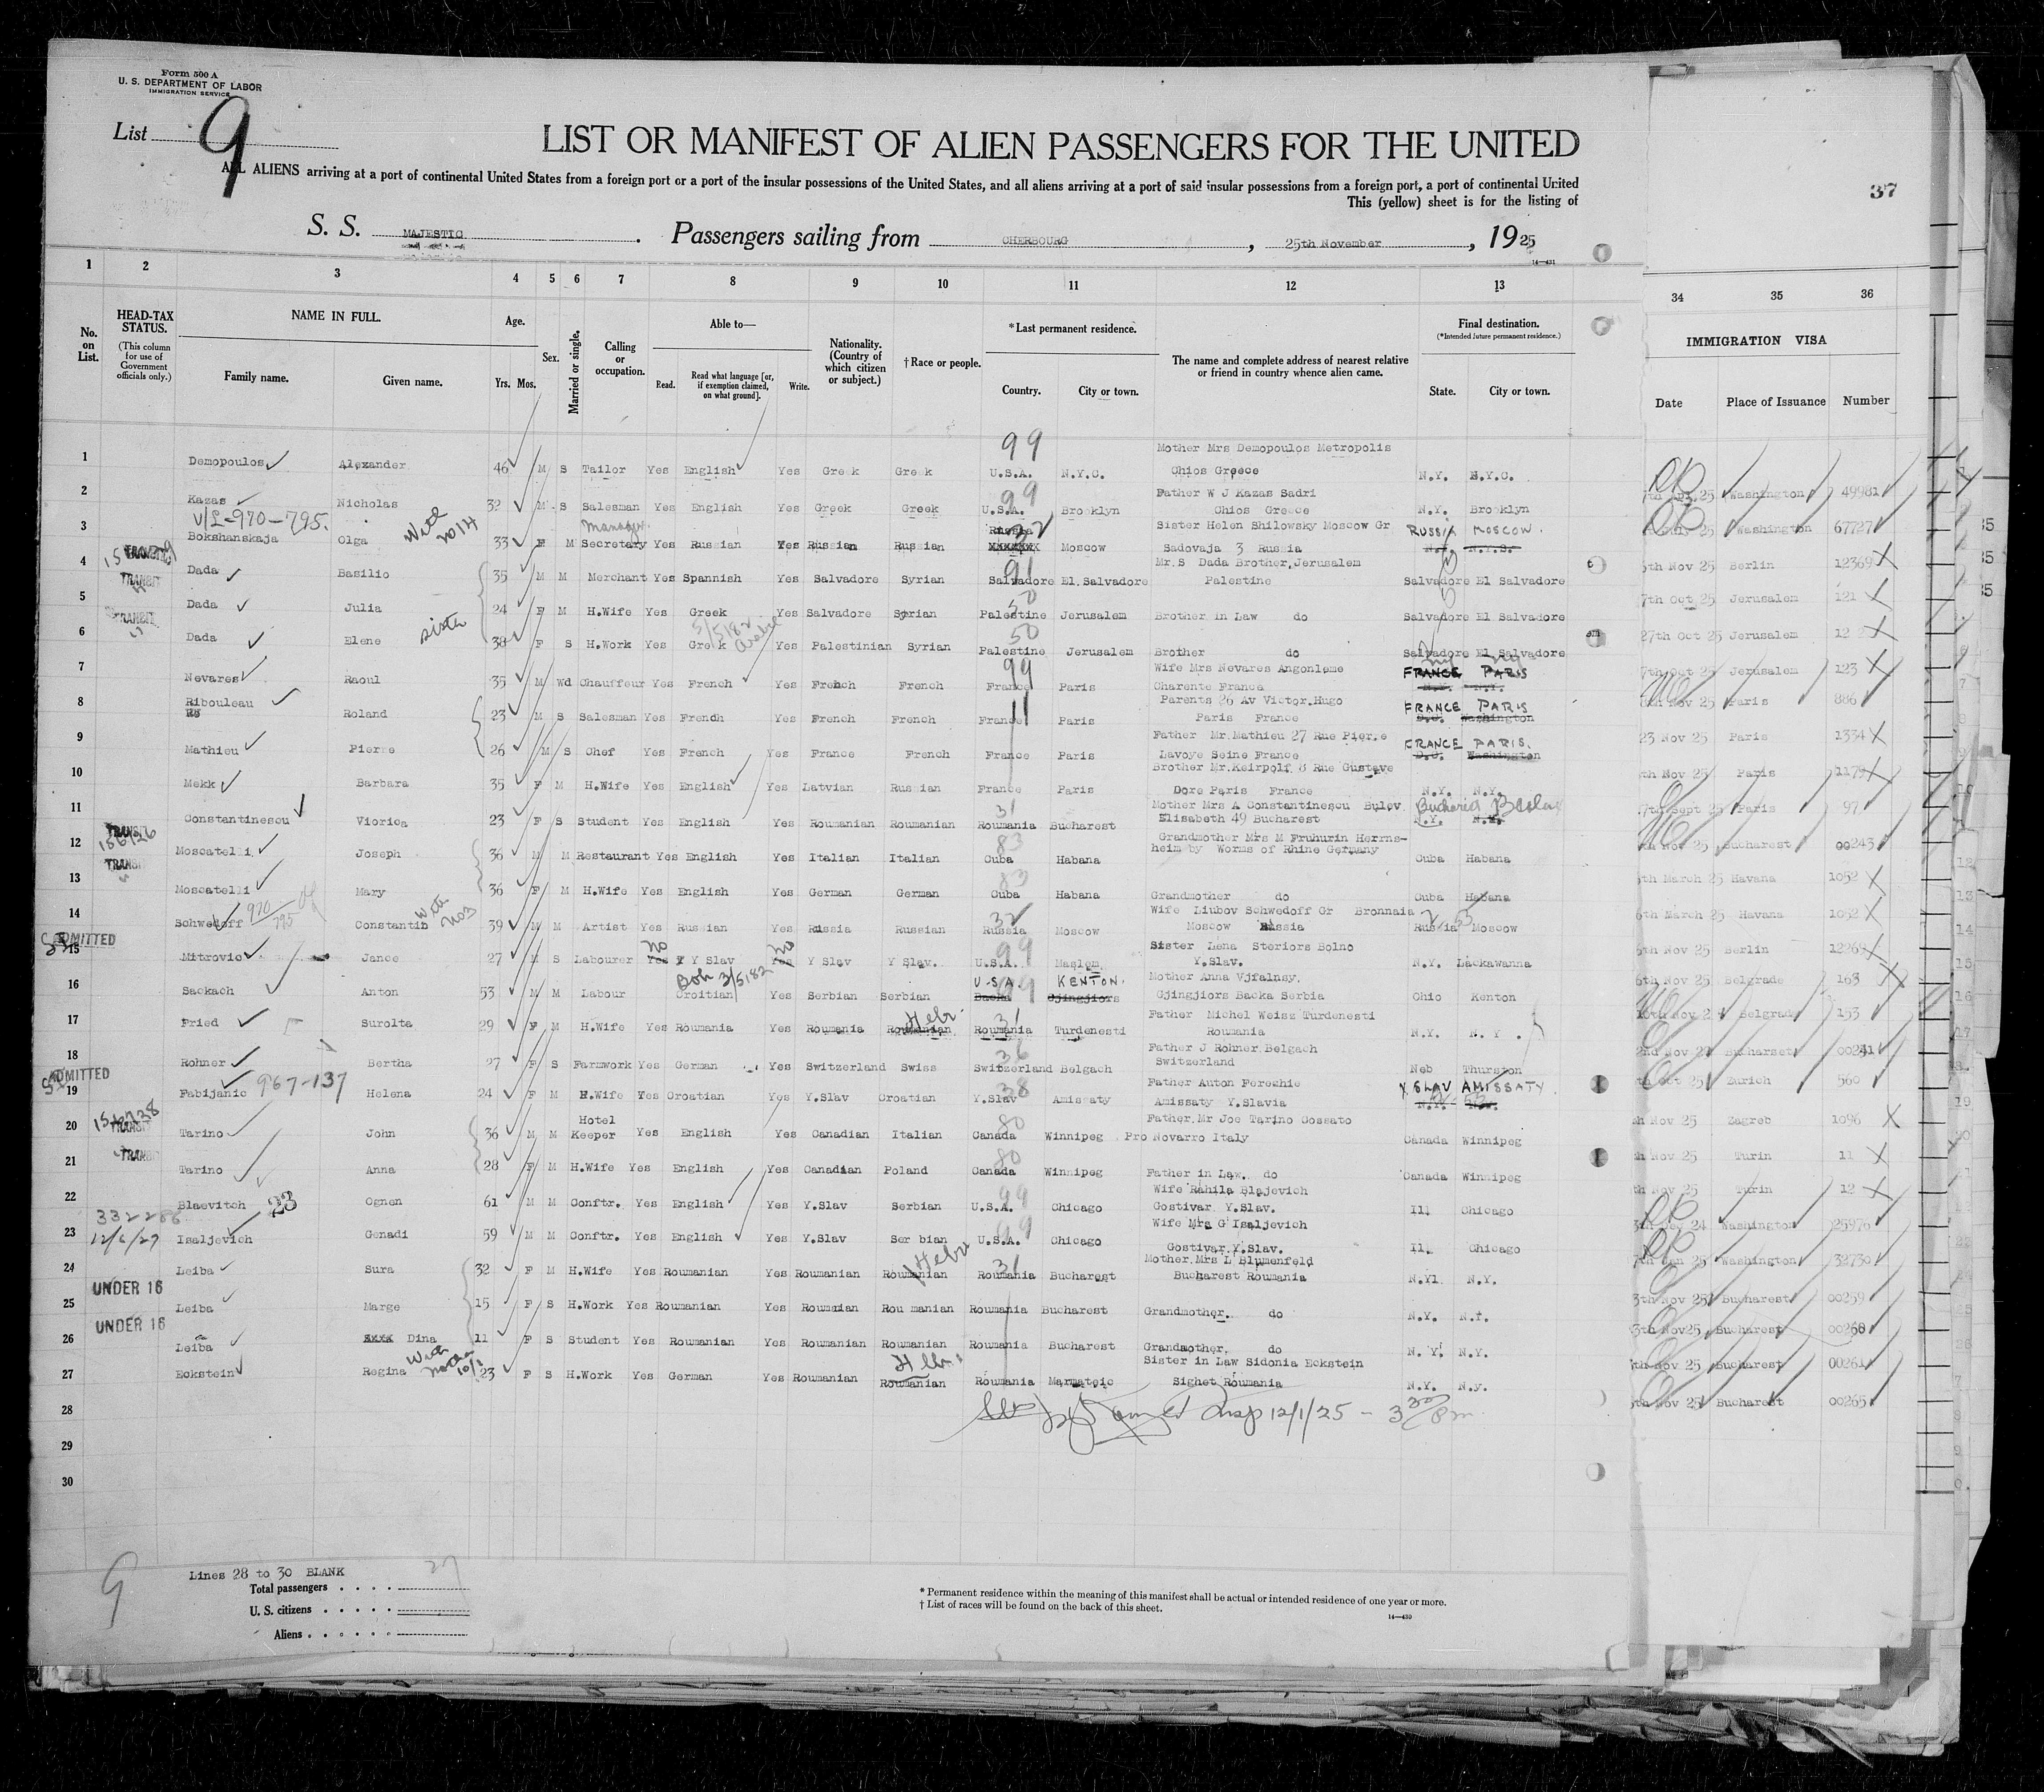 Form 500 A
U. S. DEPARTMENT OF LABOR
IMMIGRATION SERVICE
List 9
LIST OR MANIFEST OF ALIEN PASSENGERS FOR THE UNITED
ALL ALIENS arriving at a port of continental United States from a foreign port or a port of the insular possessions of the United States, and all aliens arriving at a port of said insular possessions from a foreign port, a port of continental United
This (yellow) sheet is for the listing of
37
S. S. MAJESTIC. Passengers sailing from CHERBOURG, 25th November, 1925
14—431
1 2 3 4 5 6 7 8 9 10 11 12 13 34 35 36
No. on List.
HEAD-TAX STATUS.
(This column for use of Government officials only.)
NAME IN FULL.
Family name. Given name.
Age.
Yrs. Mos.
Sex.
Married or single.
Calling or occupation.
Able to—
Read. Read what language [or, if exemption claimed, on what ground]. Write.
Nationality. (Country of which citizen or subject.)
†Race or people.
*Last permanent residence.
Country. City or town.
The name and complete address of nearest relative or friend in country whence alien came.
Final destination.
(*Intended future permanent residence.)
State. City or town.
IMMIGRATION VISA
Date Place of Issuance Number
99 Mother Mrs Demopoulos Metropolis
1 Demopoulos Alexander 46 M S Tailor Yes English Yes Greek Greek U.S.A. N.Y.C. Chios Greece N.Y. N.Y.C.
99 Father W J Kazas Sadri
2 Kazas Nicholas 32 M S Salesman Yes English Yes Greek Greek U.S.A. Brooklyn Chios Greece N.Y. Brooklyn Washington 49981
V/L-970-795. With no 14 Manager Russia 32 Sister Helen Shilowsky Moscow Gr RUSSIA MOSCOW
3 Bokshanskaja Olga 33 F M Secretary Yes Russian Yes Russian Russian Moscow Sadovaja 3 Russia Washington 67727
TRANSIT 91 Mr.S Dada Brother,Jerusalem
4 Dada Basilio 35 M M Merchant Yes Spannish Yes Salvadore Syrian Salvadore El.Salvadore Palestine Salvadore El Salvadore Nov 25 Berlin 12369
TRANSIT 50
5 Dada Julia 24 F M H.Wife Yes Greek Yes Salvadore Syrian Palestine Jerusalem Brother in Law do Salvadore El Salvadore 7th Oct 25 Jerusalem 121
TRANSIT sister 5/5182 Arabic 50
6 Dada Elene 38 F S H.Work Yes Greek Yes Palestinian Syrian Palestine Jerusalem Brother do Salvadore El Salvadore 27th Oct 25 Jerusalem
99 Wife Mrs Nevares Angonleme FRANCE PARIS
7 Nevares Raoul 35 M Wd Chauffeur Yes French Yes French French France Paris Charente France 7th Oct 25 Jerusalem 123
11 Parents 26 Av Victor.Hugo FRANCE PARIS
8 Ribouleau Roland 23 M S Salesman Yes French Yes French French France Paris Paris France D.C. Washington Nov 25 Paris 886
Father Mr.Mathieu 27 Rue Pierre FRANCE PARIS.
9 Mathieu Pierre 26 M S Chef Yes French Yes France French France Paris Lavoye Seine France D.C. Washington 23 Nov 25 Paris 1334
Brother Mr.Keirpolf 8 Rue Gustave
10 Mekk Barbara 35 F M H.Wife Yes English Yes Latvian Russian France Paris Dore Paris France N.Y. N.Y. Nov 25 Paris 1179
31 Mother Mrs A Constantinescu Bulev.
11 Constantinescu Viorica 23 F S Student Yes English Yes Roumanian Roumanian Roumania Bucharest Elisabeth 49 Bucharest N.Y. 7th Sept 25 Paris 97
TRANSIT 83 Grandmother Mrs M Fruhurin Herrns-
12 Moscatelli Joseph 36 M M Restaurant Yes English Yes Italian Italian Cuba Habana heim by Worms of Rhine Germany Cuba Habana Nov 25 Bucharest 00243
TRANSIT 83
13 Moscatelli Mary 36 F M H.Wife Yes English Yes German German Cuba Habana Grandmother do Cuba Habana 6th March 25 Havana 1052
970/795 With no3 32 Wife Liubov Schwedoff Gr Bronnaia
14 Schwedoff Constantin 39 M M Artist Yes Russian Yes Russia Russian Russia Moscow Moscow Russia Russia Moscow 6th March 25 Havana 1052
ADMITTED no no 99 Sister Lena Steriors Bolno
15 Mitrovic Jance 27 M S Labourer Yes Y Slav Yes Y Slav Y Slav. U.S.A. Y.Slav. N.Y. Lackawanna 6th Nov 25 Berlin 12269
3/5182 U.S.A. KENTON. Mother Anna Vjfalnsy.
16 Sackach Anton 53 M M Labour Croitian Yes Serbian Serbian Backa Gjingjiors Gjingjiors Backa Serbia Ohio Kenton 6th Nov 25 Belgrade 163
Hebr. 31 Father Michel Weisz Turdenesti
17 Fried Surolta 29 F M H.Wife Yes Roumania Yes Roumania Roumanian Roumania Turdenesti Roumania N.Y. N.Y. Belgrade 153
36 Father J Rohner,Belgach
18 Rohner Bertha 27 F S Farmwork Yes German Yes Switzerland Swiss Switzerland Belgach Switzerland Neb Thurston Bucharset 00241
ADMITTED 967-137 38 Father Auton Ferechie Y SLAV AMISSATY
19 Fabijanic Helena 24 F M H.Wife Yes Croatian Yes Y.Slav Croatian Y.Slav Amissaty Amissaty Y.Slavia Oct 25 Zurich 560
TRANSIT Hotel 80 Father,Mr Joe Tarino Cossato
20 Tarino John 36 M M Keeper Yes English Yes Canadian Italian Canada Winnipeg Pro Novarro Italy Canada Winnipeg Nov 25 Zagreb 1096
TRANSIT 80
21 Tarino Anna 28 F M H.Wife Yes English Yes Canadian Poland Canada Winnipeg Father in Law. do Canada Winnipeg Nov 25 Turin 11
23 99 Wife Rahila Blajevich
22 Blaevitch Ognen 61 M M Conftr. Yes English Yes Y.Slav Serbian U.S.A. Chicago Gostivar Y.Slav. Ill Chicago Nov 25 Turin 12
332286 12/6/27 99 Wife Mrs G Isaljevich
23 Isaljevich Genadi 59 M M Conftr. Yes English Yes Y.Slav Ser bian U.S.A. Chicago Gostivar Y.Slav. Il. Chicago 24 Washington 25976
Hebr 31 Mother.Mrs L Blumenfeld
24 Leiba Sura 32 F M H.Wife Yes Roumanian Yes Roumanian Roumanian Roumania Bucharest Bucharest Roumania N.Y. N.Y. 25 Washington 32730
UNDER 16
25 Leiba Marge 15 F S H.Work Yes Roumanian Yes Roumanian Rou manian Roumania Bucharest Grandmother. do N.Y. N.Y. Nov 25 Bucharest 00259
UNDER 16
26 Leiba Dina 11 F S Student Yes Roumanian Yes Roumanian Roumanian Roumania Bucharest Grandmother. do N.Y. N.Y. Nov25 Bucharest 00260
With Sister in Law Sidonia Eckstein
27 Eckstein Regina 23 F S H.Work Yes German Yes Roumanian Roumanian Roumania Marmateic Sighet Roumania N.Y. N.y. Nov 25 Bucharest 00261
28 Insp 12/1/25 - 3 30 Pm Nov 25 Bucharest 00265
29
30
9
Lines 28 to 30 BLANK
Total passengers 27
U. S. citizens
Aliens
* Permanent residence within the meaning of this manifest shall be actual or intended residence of one year or more.
† List of races will be found on the back of this sheet.
14—430